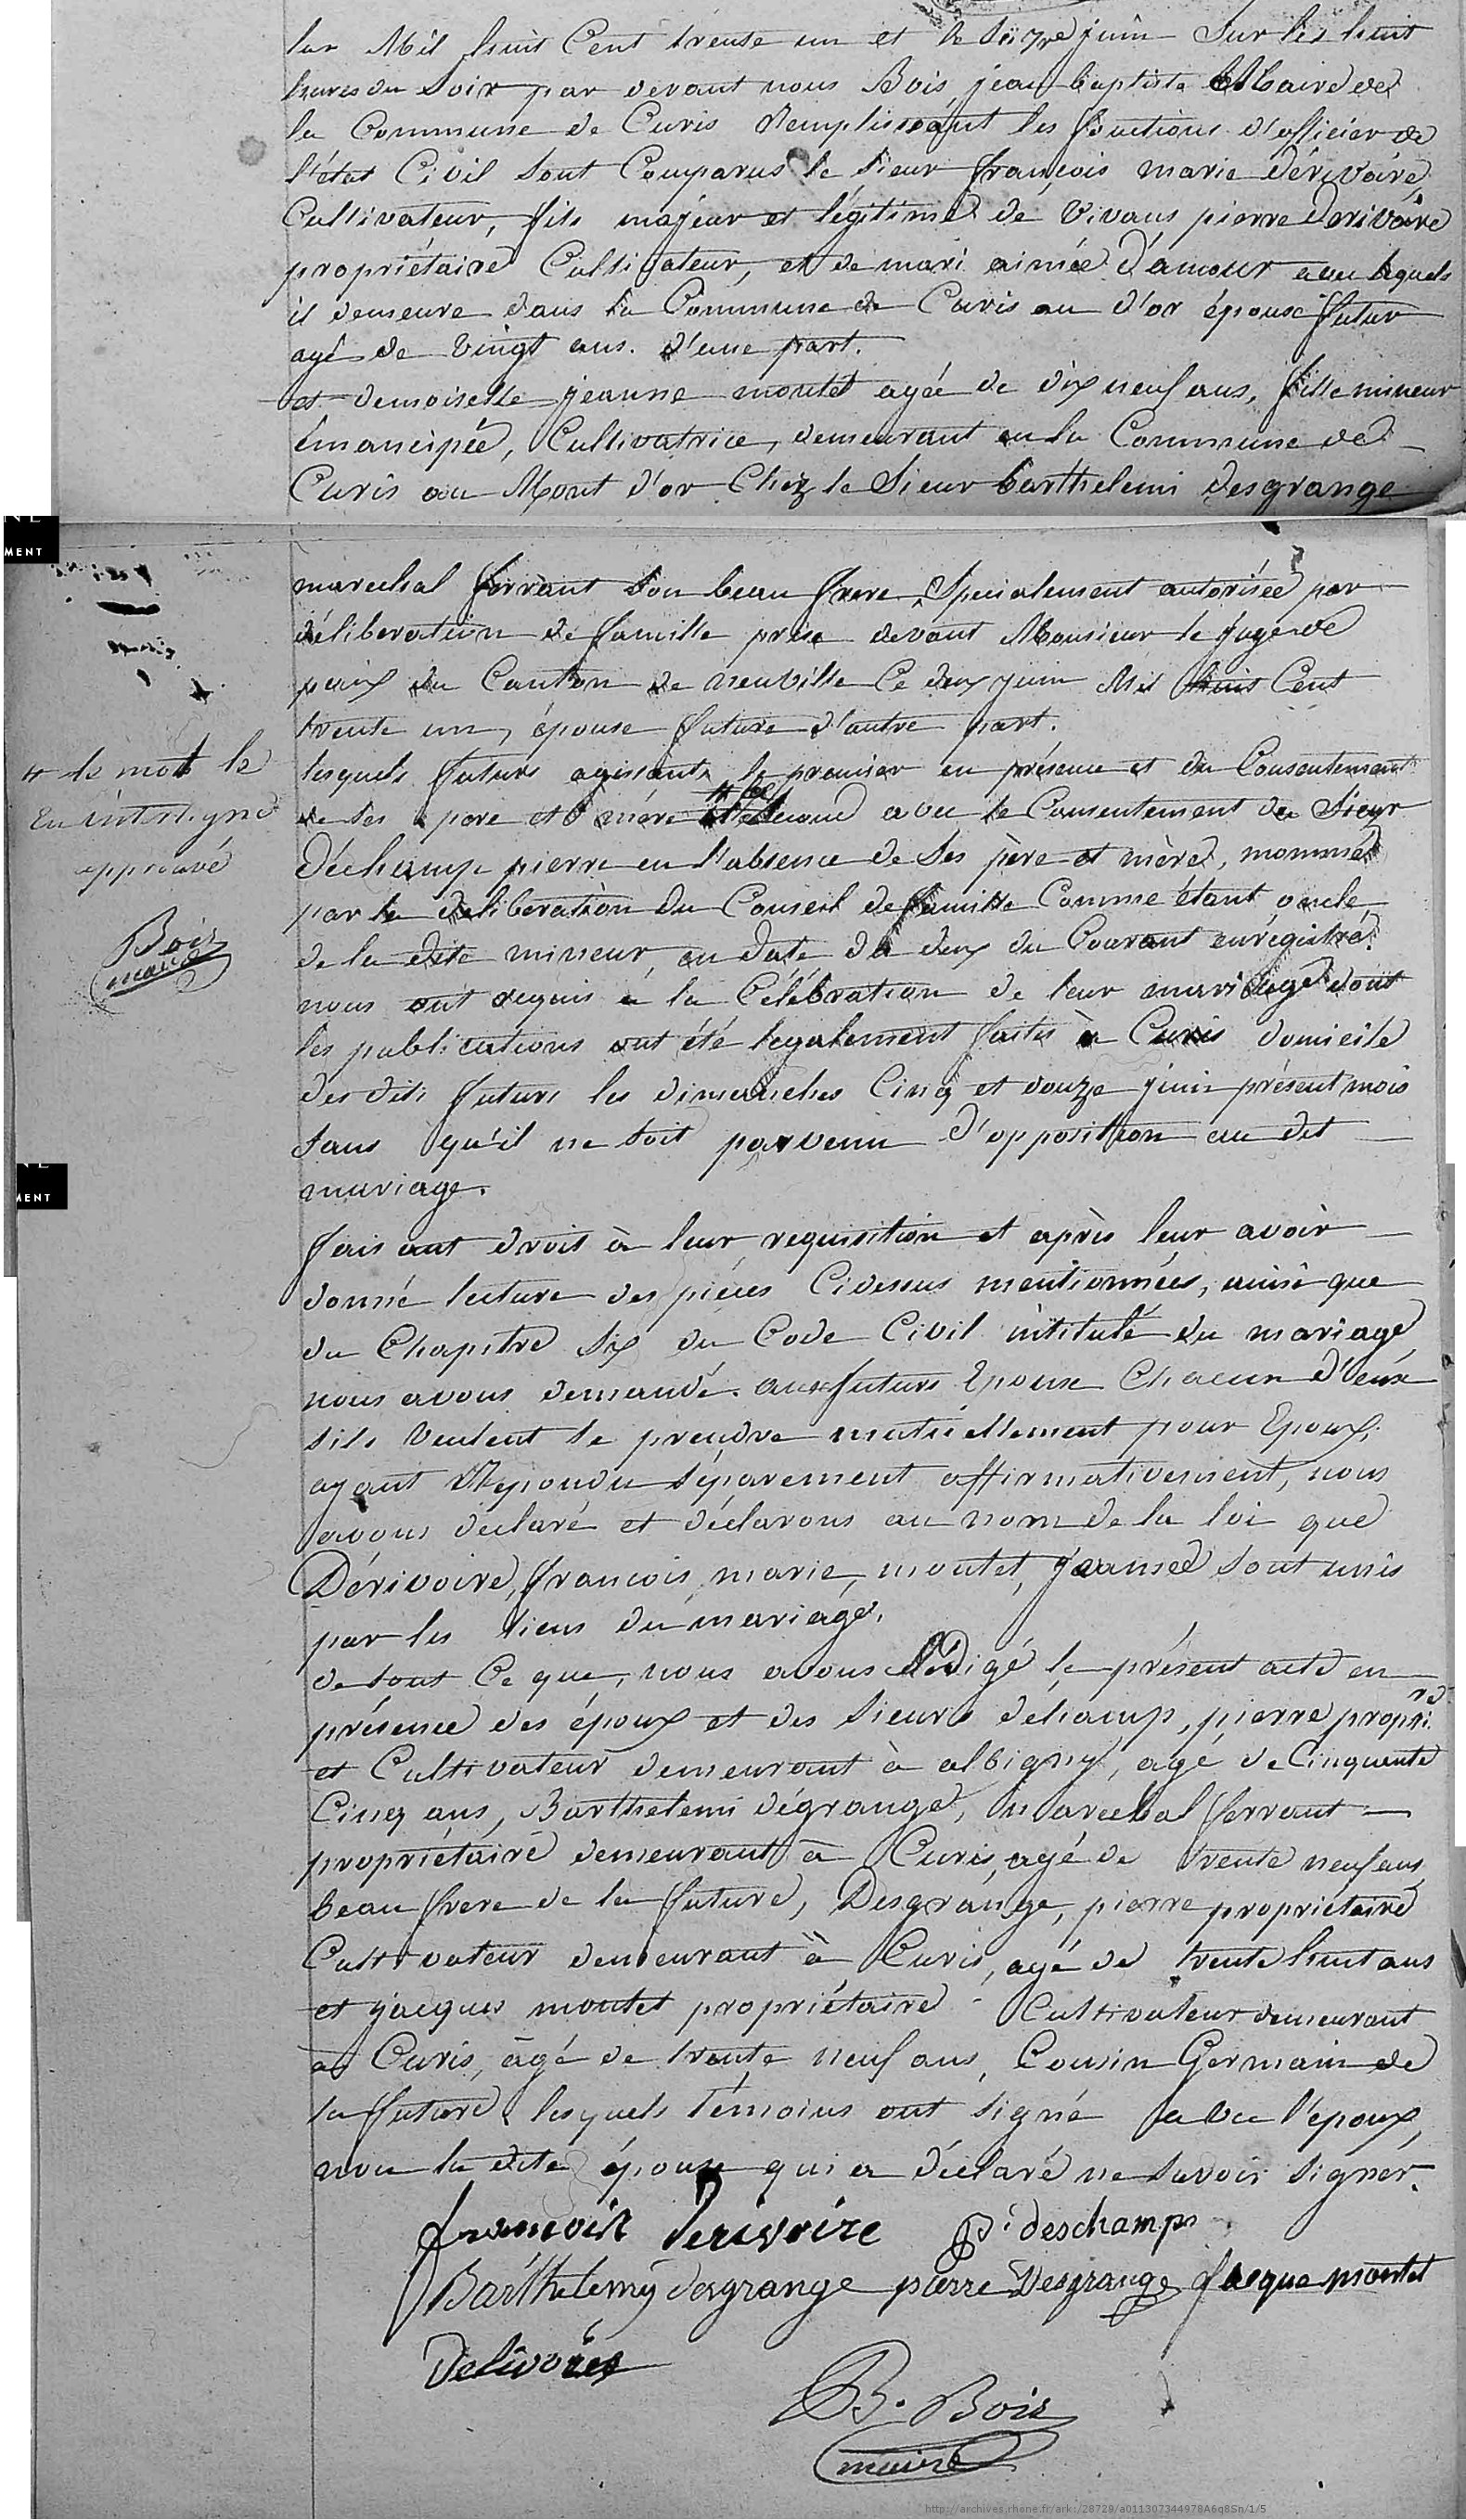 lan Mil huit Cent trente un et le Seize juin Sur les huit
heures du Soir par devant nous Bois jean baptiste Maire de
la Commune de Curis Remplissant les fonctions d'officier de
l'état Civil Sont Comparus le Sieur françois marie dérivoire
Cultivateur, fils majeur et légitime de Vivans pierre Derivoire
propriétaire Cultivateur, et de mari aimée D'amour avec lequels
il demeure dans la Commune de Curis au d'or épouse futur
agé de Vingt ans. d'une part.
et demoiselle jeanne montet agée de dix neuf ans, fille mineur
émancipée, Cultivatrice, demeurant en la Commune de
Curis au Mont d'or Chez le Sieur barthelemi desgrange
marechal ferrant Son beau frere, Specialement autorisée par
déliberation de famille prise devant Monsieur le juge de
paix du Canton de neuville Ce deux juin Mil huit Cent
trente un, épouse future d'autre part.
lesquels futurs agissants le premier en présence et du Consentement
de Ses pere et mère # le Second avec le Consentement du Sieur
Déchamp pierre en l'absence de Ses père et mère, nommé
par la deliberation du Conseil de famille Comme étant oncle
de la dite mineur, en date du deux du Courant enrégistré.
nous ont requis a la Célébration de leur mariage dont
les publications ont été legalement faites à Curis domicile
des dits futurs les dimanches Cinq et douze juin présent mois
Sans qu'il ne Soit parvenu d'opposition au dit
mariage.
# le mot le
en interligne
approuvé
Bois
maire
faisant droit à leur requisition et après leur avoir
donné lecture des pièces Cidessus mentionnées, ainsi que
du Chapitre Six du Code Civil intitulé du mariage
nous avons demandé aux futurs Epoux Chacun d'eux
Sils Veulent Se prendre mutuellement pour Epoux,
ayant Repondu Séparement affirmativement, nous
avons déclaré et déclarons au nom de la loi que
Dérivoire, francois, marie, montet, jeanne Sont unis
par les liens du mariage.
de tout Ce que, nous avons Rédigé le présent acte en
présence des époux et des Sieurs déhamp, pierre propri.re
et Cultivateur demeurant à albigny, agé de Cinquante
Cinq ans, Barthelemi dégrange, marechal ferrant
propriétaire demeurant à Curis, agé de trente neuf ans,
beau frere de la future, Desgrange, pierre propriétaire
Cultivateur demeurant à Curis, agé de trente huit ans
et jacques montet propriétaire Cultivateur demeurant
à Curis, âgé de trente neuf ans, Cousin Germain de
la future, lesquels témoins ont Signé avec l'époux,
non la dite épouse qui a déclaré ne Savoir Signer.
francois derivoire P. deschamps
Barthelemy desgrange pierre Desgrange Jacque montet
Derivoire
B. Bois
maire
http://archives.rhone.fr/ark:/28729/a011307344978A6q8Sn/1/5